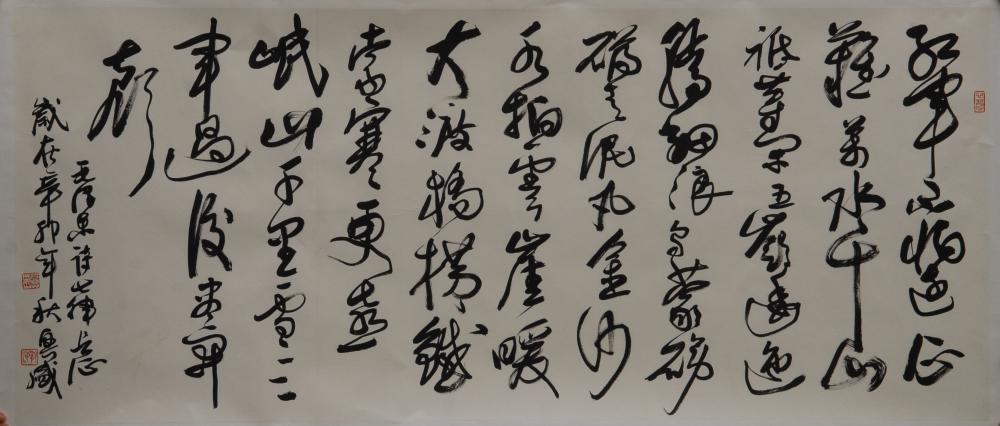 红军不怕远征
難萬水千山
祇等闲五嶺逶迤
腾细浪乌蒙磅
礴走泥丸金沙
水拍雲崖暖
大渡橋横鐵
索寒更喜
岷山千里雪三
军过後尽开
颜
毛泽东诗七律长征
歲在辛卯年秋